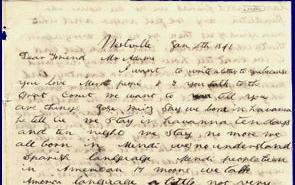 Westville Jan 4th 1841
Dear Friend Mr Adams
I want to write a letter to you because
you love Mendi people & you talk to the
Great Court we want to tell you
are things Jose Ruiz Say we born in havanna
he tell lie we Stay in havanna ten days
and ten night we Stay no more we
all born in Mendi we no understand
Spanish language Mendi people been
in American 17 moons we talk
America language a little not very